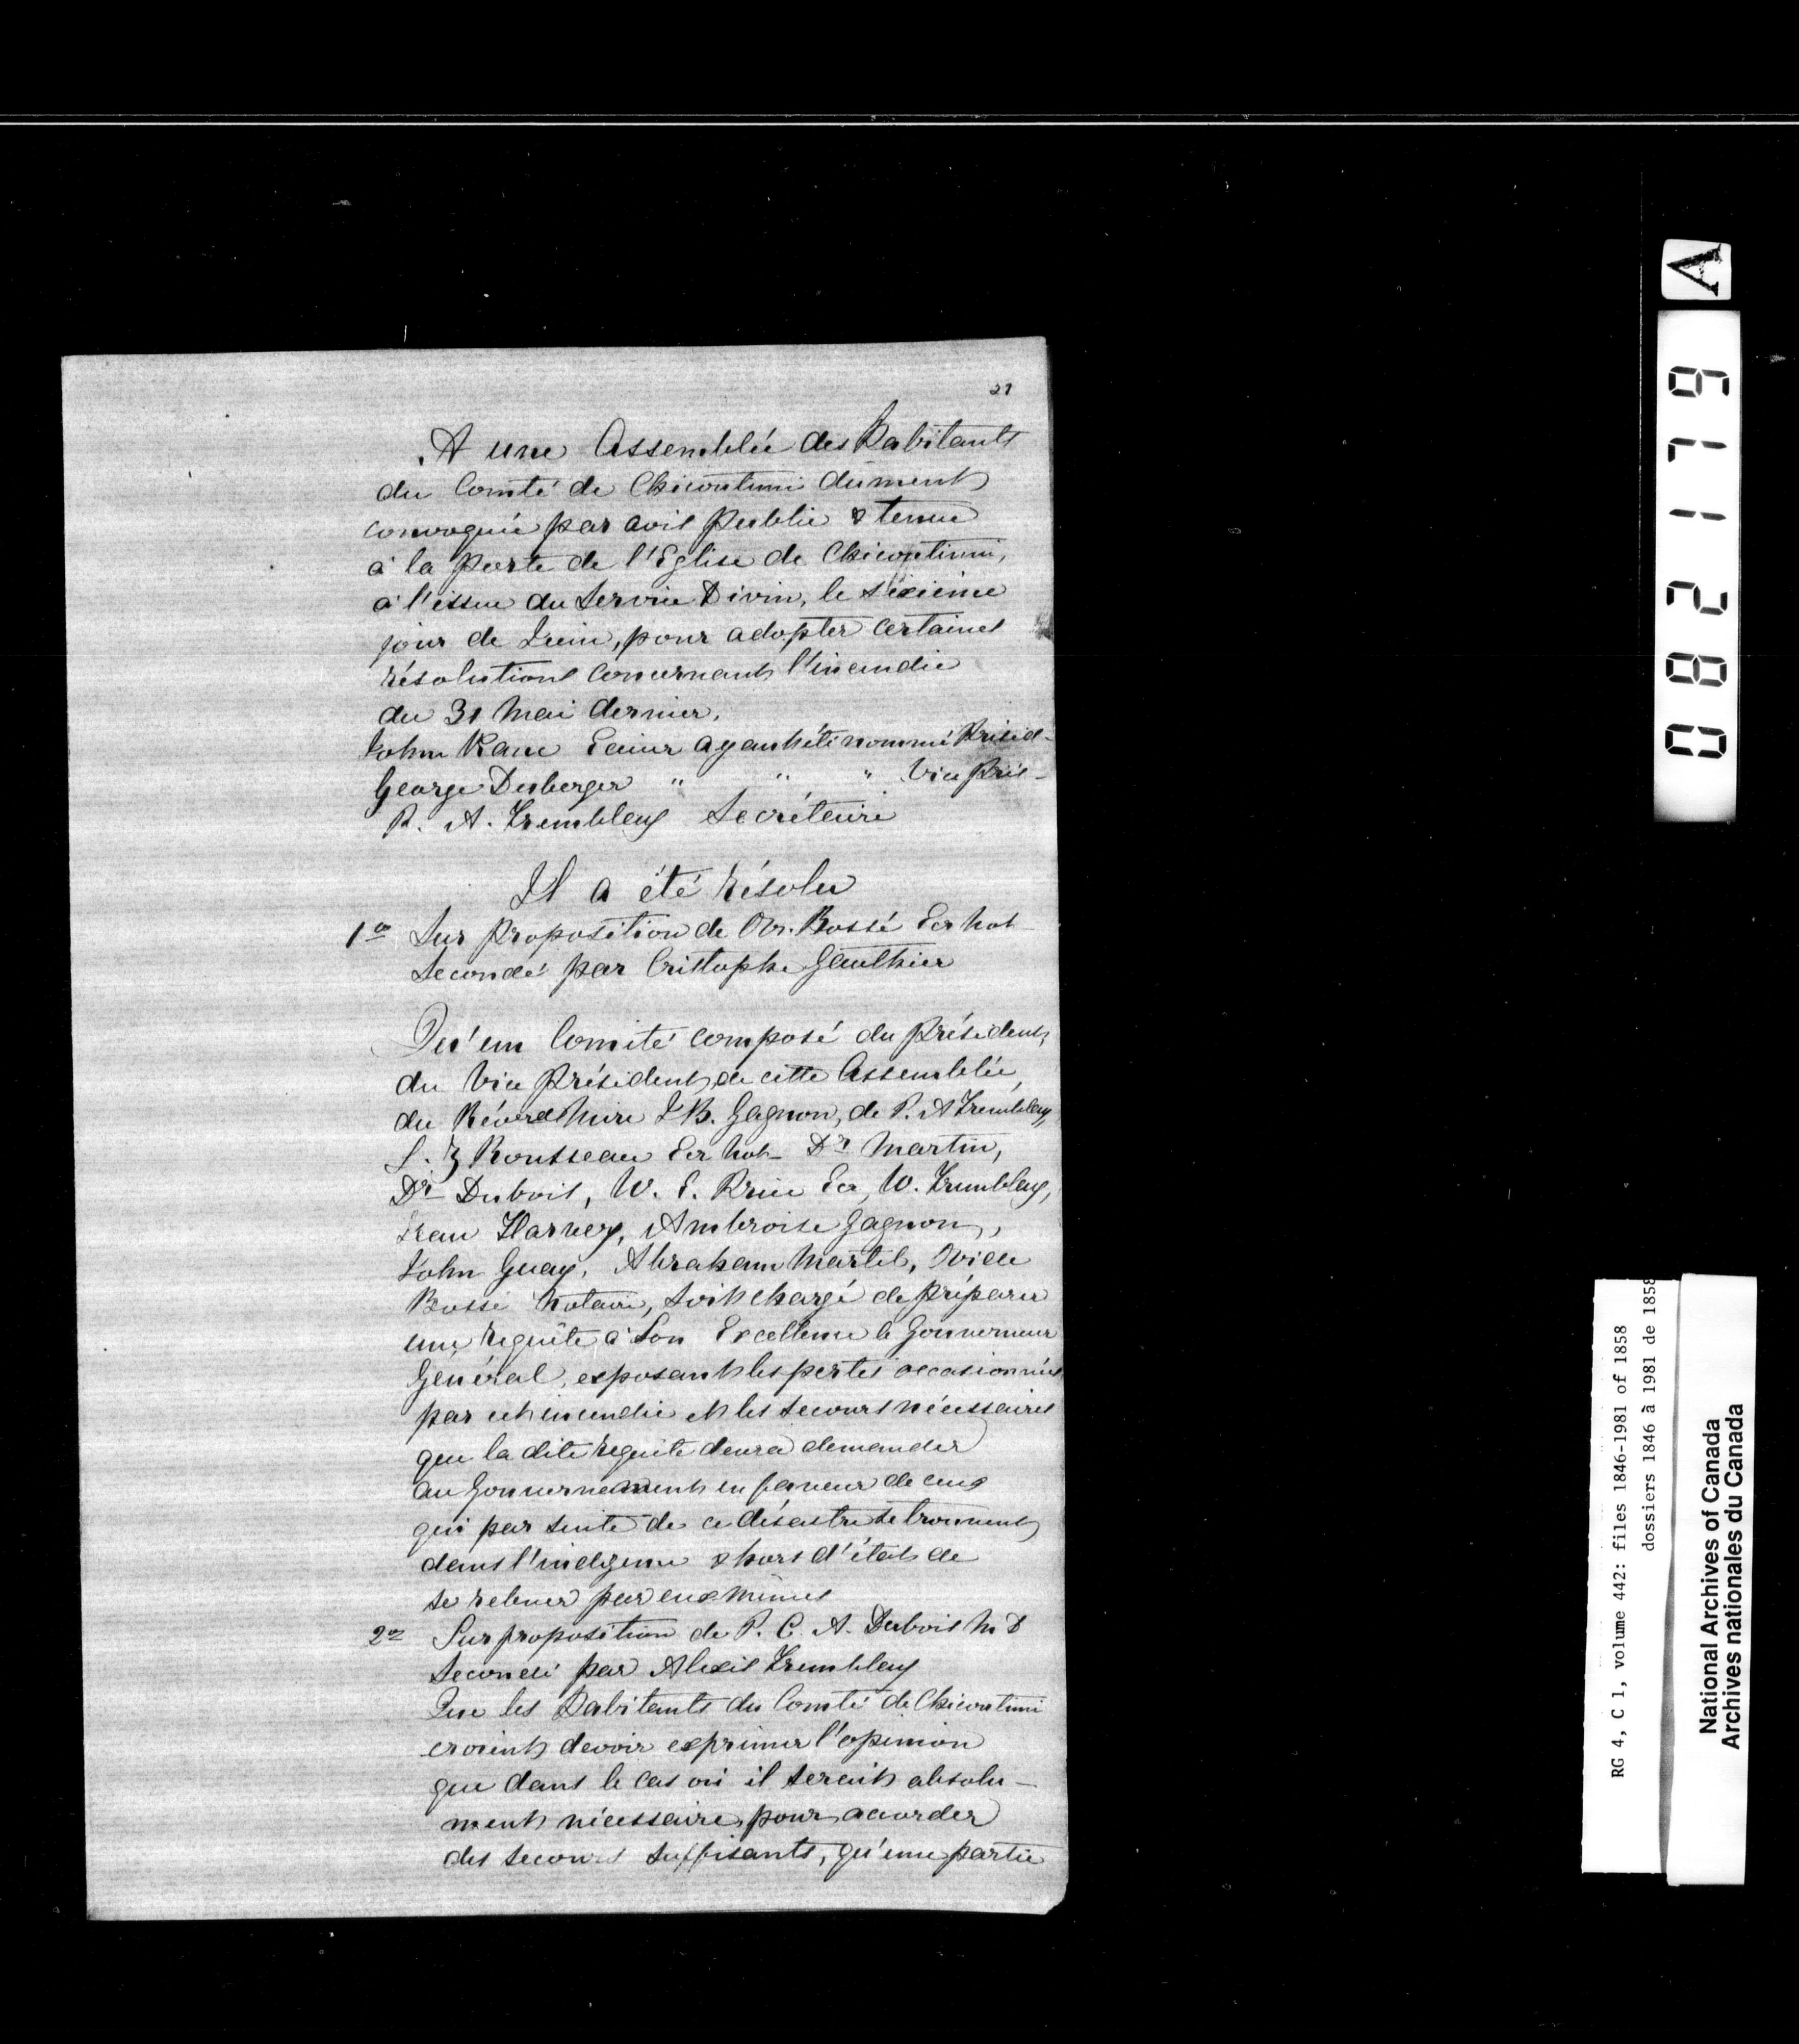 21
A une Assemblée des Habitants
du Comté de Chicoutimi dûment
convoquée par avis public & tenue
à la porte de l'Eglise de Chicoutimi,
à l'issue du Service Divin, le sixième
jour de Juin, pour adopter certaines
résolutions concernant l'incendie
du 31 Mai dernier.
John Kane Ecuier ayant été nommé Présid-
George Duberger " " " Vice Prés-
P. A. Tremblay Secrétaire
Il a été résolu
1o Sur proposition de Ov. Bossé Ecr Not
Secondé par Cristophe Gauthier
Qu'un Comité composé du Président,
du Vice Président de cette Assemblée,
du Révérd Mire J B. Gagnon, de P. A Tremblay,
L. Z Rousseau Ecr Not- Dr Martin,
Dr Dubois, W. E. Price Ecr, W. Tremblay,
Jean Harvey, Ambroise Gagnon,
John Guay, Abraham Martel, Ovide
Bossé Notaire, soit chargé de préparer
une requête à Son Excellence le Gouverneur
Général, exposant les pertes occasionnées
par cet incendie et les secours nécessaires
que la dite requête devra demander
au Gouvernement en faveur de ceux
qui par suite de ce désastre se trouvent
dans l'indigence & hors d'état de
se relever par eux mêmes
2o Sur proposition de P. C. A. Dubois M D
Secondé par Alexis Tremblay
Que les Habitants du Comté de Chicoutimi
croient devoir exprimer l'opinion
que dans le cas où il serait absolu-
ment nécessaire, pour accorder
des secours suffisants, qu'une partie
A
0821179
RG 4, C 1, volume 442: files 1846-1981 of 1858
dossiers 1846 à 1981 de 1858
National Archives of Canada
Archives nationales du Canada